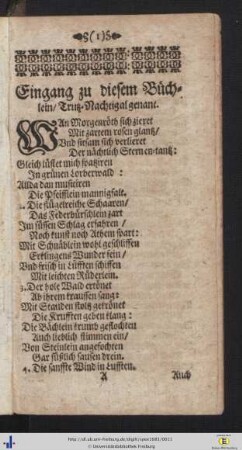 (1)
Eingang zu diesem Büch-
lein/ Trutz-Nachtigal genant.
WAn Morgenröth sich zieret
Mit zartem rosen glantz/
Vnd sitsam sich verlieret
Der nächtlich Sternen-tantz:
Gleich lüstet mich spatziren
In grünen Lorberwald:
Allda dan musiciren
Die Pfeifflein mannigfalt.
2. Die flügelreiche Schaaren/
Das Federbürschlein zart
Im süssen Schlag erfahren/
Noch kunst noch Athem spart:
Mit Schnäblein wohl geschliffen
Erklingens Wunder fein/
Vnd frisch in Lüfften schiffen
Mit leichten Rüderlein.
3. Der hole Wald ertönet
Ab ihrem kraussen sang:
Mit Stauden stoltz gekrönet
Die Krufften geben klang:
Die Bächlein krumb geflochten
Auch lieblich stimmen ein/
Von Steinlein angefochten
Gar süßlich sausen drein.
4. Die sanffte Wind in Lufften.
A Auch
© Universitätsbibliothek Freiburg